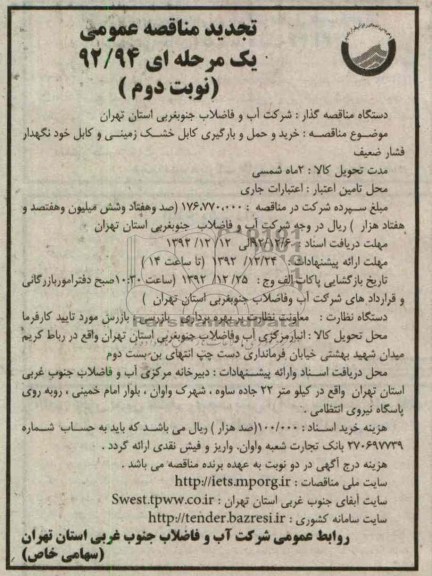 تجدید مناقصه عمومی
یک مرحله ای ۹۲/۹۴
(نوبت دوم)
دستگاه مناقصه گذار : شرکت آب و فاضلاب جنوبغربی استان تهران
موضوع مناقصه : خرید و حمل و بارگیری کابل خشک زمینی و کابل خود نگهدار
فشار ضعیف
مدت تحویل کالا : ۲ماه شمسی
محل تامین اعتبار : اعتبارات جاری
مبلغ سپرده شرکت در مناقصه : ۱۷۶.۷۷۰.۰۰۰ (صد وهفتاد وشش میلیون وهفتصد و
هفتاد هزار ) ریال در وجه شرکت آب و فاضلاب جنوبغربی استان تهران
مهلت دریافت اسناد : ۹۲/۱۲/۶الی ۱۲/ ۱۲/ ۱۳۹۲
مهلت ارائه پیشنهادات: ۱۲/۲۴/ ۱۳۹۲ (تا ساعت ۱۴ )
تاریخ بازگشایی پاکات الف وج : ۲۵/ ۱۲/ ۱۳۹۲ (ساعت ۱۰:۳۰صبح دفتراموربازرگانی
و قرارداد های شرکت آب وفاضلاب جنوبغربی استان تهران )
دستگاه نظارت : معاونت نظارت بر بهره برداری بازرسی : بازرس مورد تایید کارفرما
محل تحویل کالا : انبارمرکزی آب وفاضلاب جنوبغربی استان تهران واقع در رباط کریم
میدان شهید بهشتی خیابان فرمانداری دست چپ انتهای بن بست دوم
محل دریافت اسناد وارائه پیشنهادات : دبیرخانه مرکزی آب و فاضلاب جنوب غربی
استان تهران واقع در کیلو متر ۲۲ جاده ساوه ، شهرک واوان ، بلوار امام خمینی ، روبه روی
پاسگاه نیروی انتظامی .
هزینه خرید اسناد : ۱۰۰/۰۰۰(صد هزار ) ریال می باشد که باید به حساب شماره
۲۷۰۶۹۷۷۳۹ بانک تجارت شعبه واوان، واریز و فیش نقدی ارائه گردد .
هزینه درج آگهی در دو نوبت به عهده برنده مناقصه می باشد .
سایت ملی مناقصات : http://iets.mporg.ir
سایت آبفای جنوب غربی استان تهران : Swest.tpww.co.ir
سایت سامانه کشوری : http://tender.bazresi.ir
روابط عمومی شرکت آب و فاضلاب جنوب غربی استان تهران
(سهامی خاص)